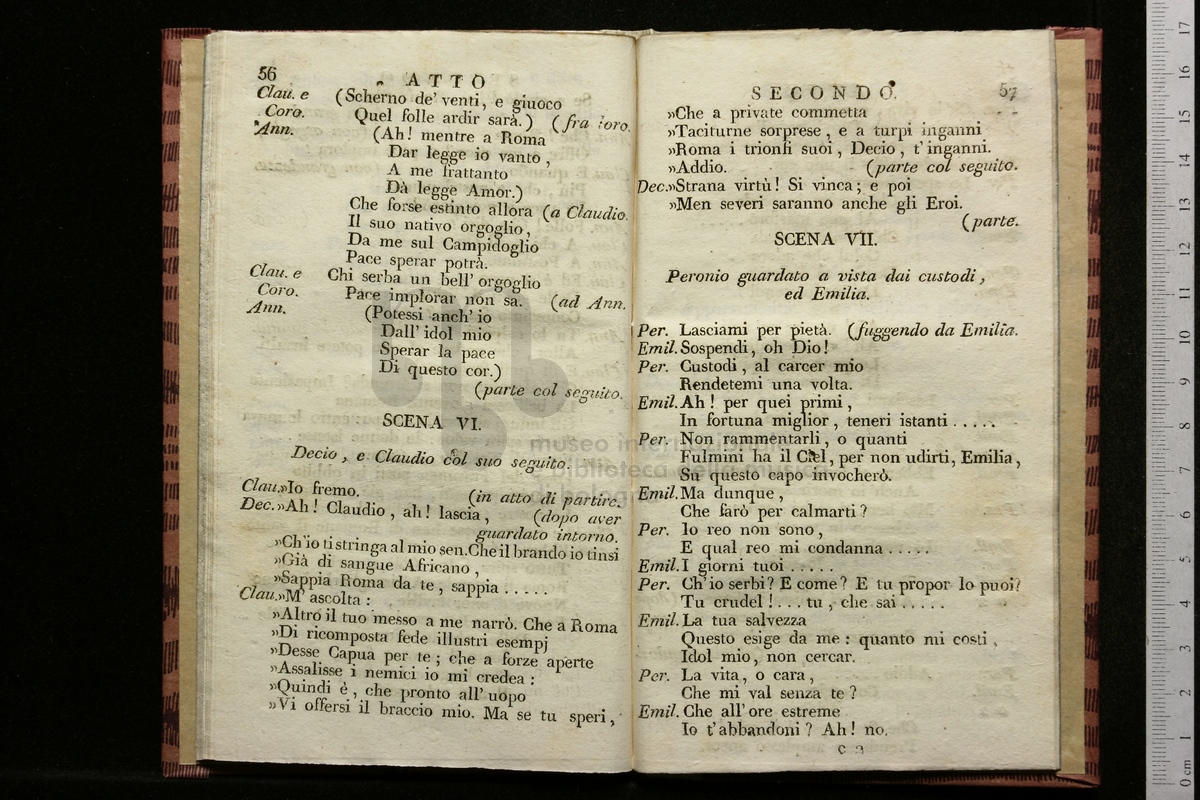 56
ATTO
Clau. e (Scherno de' venti, e giuoco
Coro. Quel folle ardir sarà.) (fra loro.
Ann. (Ah! mentre a Roma
Dar legge io vanto,
A me frattanto
Dà legge Amor.)
Che forse estinto allora (a Claudio.
Il suo nativo orgoglio,
Da me sul Campidoglio
Pace sperar potrà.
Clau. e Chi serba un bell' orgoglio
Coro. Pace implorar non sa. (ad Ann.
Ann. (Potessi anch' io
Dall' idol mio
Sperar la pace
Di questo cor.)
(parte col seguito.
SCENA VI.
Decio, e Claudio col suo seguito.
Clau. »Io fremo. (in atto di partire.
Dec. »Ah! Claudio, ah! lascia, (dopo aver
guardato intorno.
»Ch'io ti stringa al mio sen. Che il brando io tinsi
»Già di sangue Africano,
»Sappia Roma da te, sappia .....
Clau. »M' ascolta:
»Altro il tuo messo a me narrò. Che a Roma
»Di ricomposta fede illustri esempj
»Desse Capua per te; che a forze aperte
»Assalisse i nemici io mi credea:
»Quindi è, che pronto all' uopo
»Vi offersi il braccio mio. Ma se tu speri,
SECONDO.
57
»Che a private commetta
»Taciturne sorprese, e a turpi inganni
»Roma i trionfi suoi, Decio, t' inganni.
»Addio. (parte col seguito.
Dec. »Strana virtù! Si vinca; e poi
»Men severi saranno anche gli Eroi.
(parte.
SCENA VII.
Peronio guardato a vista dai custodi,
ed Emilia.
Per. Lasciami per pietà. (fuggendo da Emilia.
Emil. Sospendi, oh Dio!
Per. Custodi, al carcer mio
Rendetemi una volta.
Emil. Ah! per quei primi,
In fortuna miglior, teneri istanti .....
Per. Non rammentarli, o quanti
Fulmini ha il Ciel, per non udirti, Emilia,
Su questo capo invocherò.
Emil. Ma dunque,
Che farò per calmarti?
Per. Io reo non sono,
E qual reo mi condanna .....
Emil. I giorni tuoi .....
Per. Ch' io serbi? E come? E tu propor lo puoi?
Tu crudel! ... tu, che sai .....
Emil. La tua salvezza
Questo esige da me: quanto mi costi,
Idol mio, non cercar.
Per. La vita, o cara,
Che mi val senza te?
Emil. Che all' ore estreme
Io t' abbandoni? Ah! no.
c 3
museo internazionale
biblioteca della musica
0 cm 1 2 3 4 5 6 7 8 9 10 11 12 13 14 15 16 17